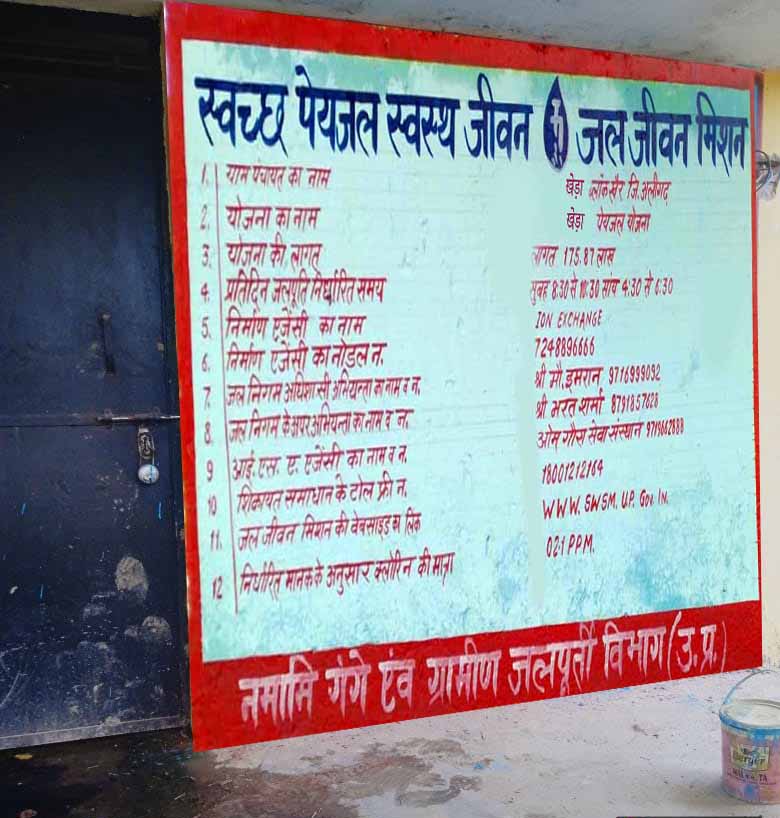 स्वच्छ पेयजल स्वस्थ जीवन जल जीवन मिशन
1. ग्राम पंचायत का नाम खेड़ा ब्लॉक खैर जि. अलीगढ़
2. योजना का नाम खेड़ा पेयजल योजना
3. योजना की लागत लागत 175.87 लाख
4. प्रतिदिन जलपूर्ति निर्धारित समय सुबह 8:30 से 10:30 सांय 4:30 से 6:30
5. निर्माण एजेंसी का नाम ION EXCHANGE
6. निर्माण एजेंसी का नोडल न. 7248896666
7. जल निगम अधिशासी अभियन्ता का नाम व न. श्री मौ. इमरान 9716999092
8. जल निगम के अपर अभियन्ता का नाम व न. श्री भरत शर्मा 8791857828
9 आई. एस. ए. एजेंसी का नाम व न. ओम गौरा सेवा संस्थान
10 शिकायत समाधान के टोल फ्री न. 18001212164
11. जल जीवन मिशन की वेबसाइड का लिंक WWW. SWSM. UP. Gov In.
12 निर्धारित मानक के अनुसार क्लोरिन की मात्रा 02.1 PPM.
नमामि गंगे एंव ग्रामीण जलपूर्ती विभाग (उ.प्र.)